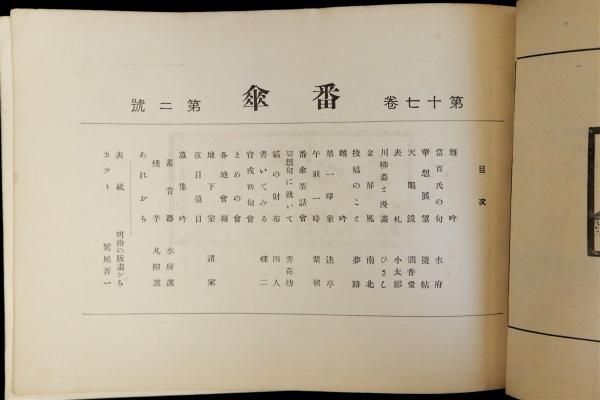 第十七卷 番傘 第二號
目次
雜吟 水府
當百氏の句
華想展望 隨帖
天眼鏡 潤香堂
表札 小太郎
川柳畫と漫畫 ひさし
金屏風 南北
投稿のこと 夢路
雜吟
第一印象 迷亭
午前一時 紫朗
番傘茶話會
冠想句に就いて 秀花坊
縞の財布 四人
書いてみる 蝶二
官戎初句會
まめの會
各地會報
地下室 諸家
夜目遠目
募集吟
蓄音器 水府選
燒芋 凡柳選
あれから
表紙 明治の版畫から
カット 鷲尾吾一